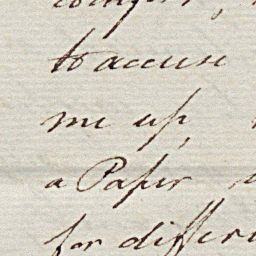 to accuse
me up,
a Paper
for differ